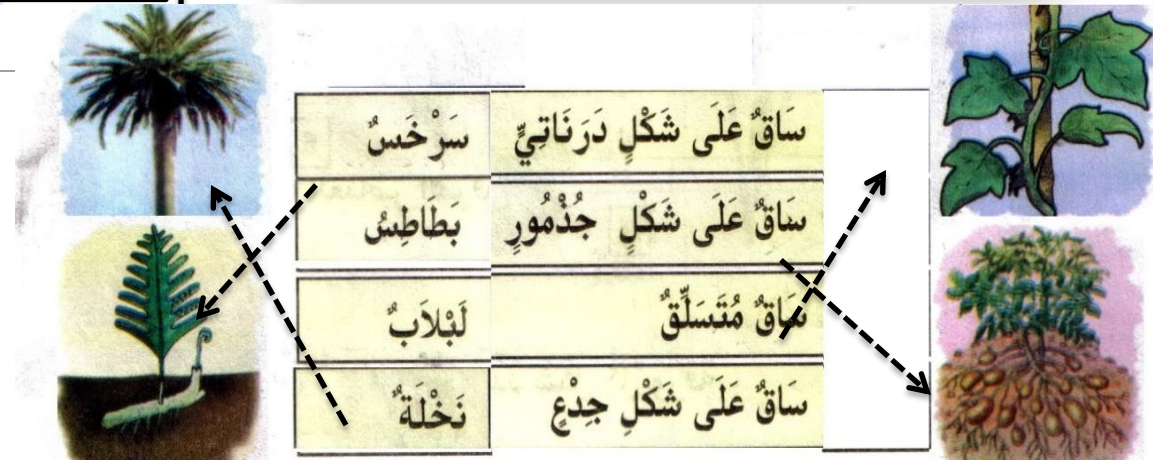 سَاقٌ عَلَى شَكْلٍ دَرَنَاتِيٍّ سَرْخَسٌ
سَاقٌ عَلَى شَكْلٍ جُذْمُورٍ بَطَاطِسُ
سَاقٌ مُتَسَلِّقٌ لَبْلَابٌ
سَاقٌ عَلَى شَكْلِ جِذْعٍ نَخْلَةٌ